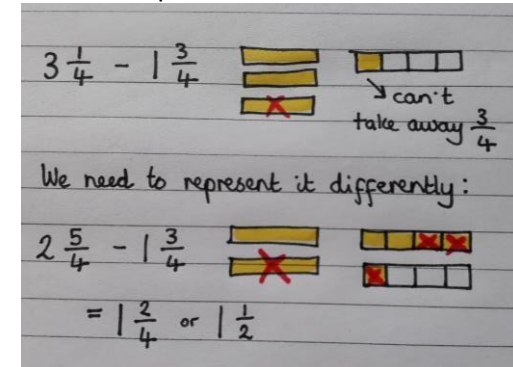 3 1/4 - 1 3/4
can't
take away 3/4
We need to represent it differently:
2 5/4 - 1 3/4
= 1 2/4 or 1 1/2